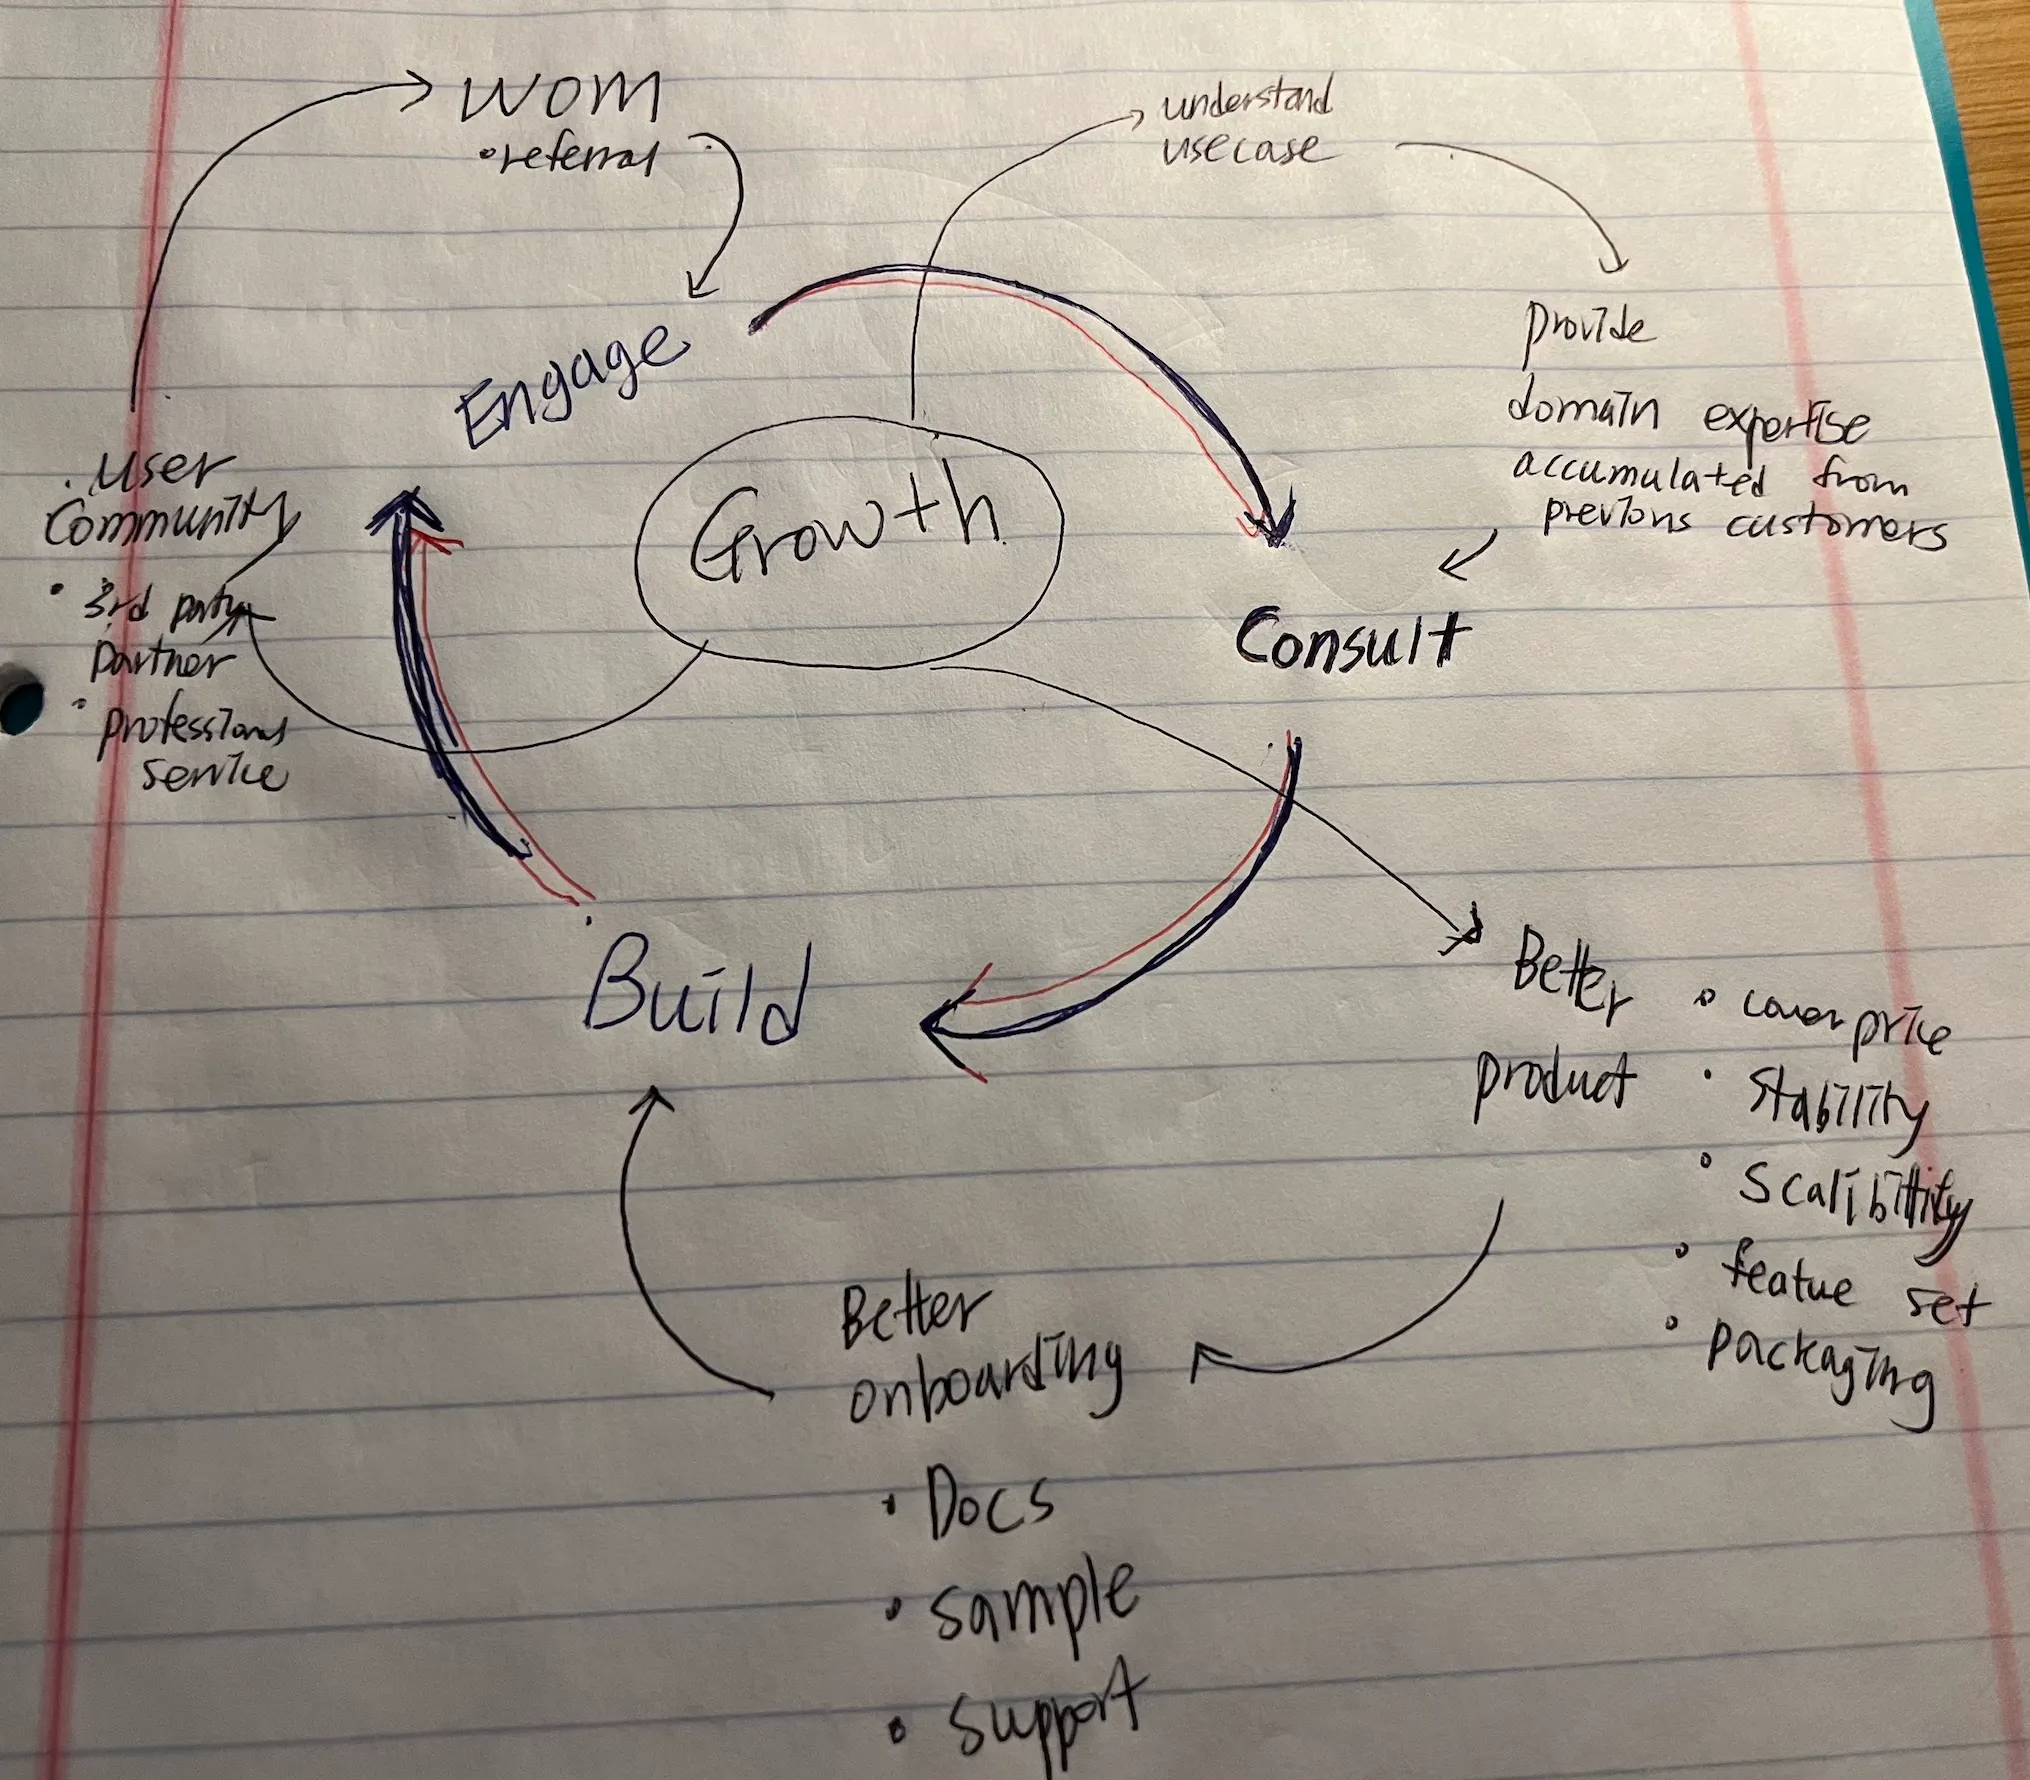 WOM
• referral
understand
usecase
Engage
Provide
domain expertise
accumulated from
previous customers
Growth
• User
Community
• 3rd party
partner
• professional
service
Consult
Build
Better
product
• Lower price
• Stability
• Scalibility
• featue set
• packaging
Better
onboarding
• Docs
• sample
• support